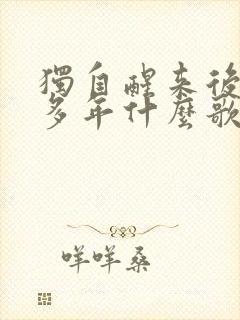 獨自醒来後
多年什麼歌
咩咩桑